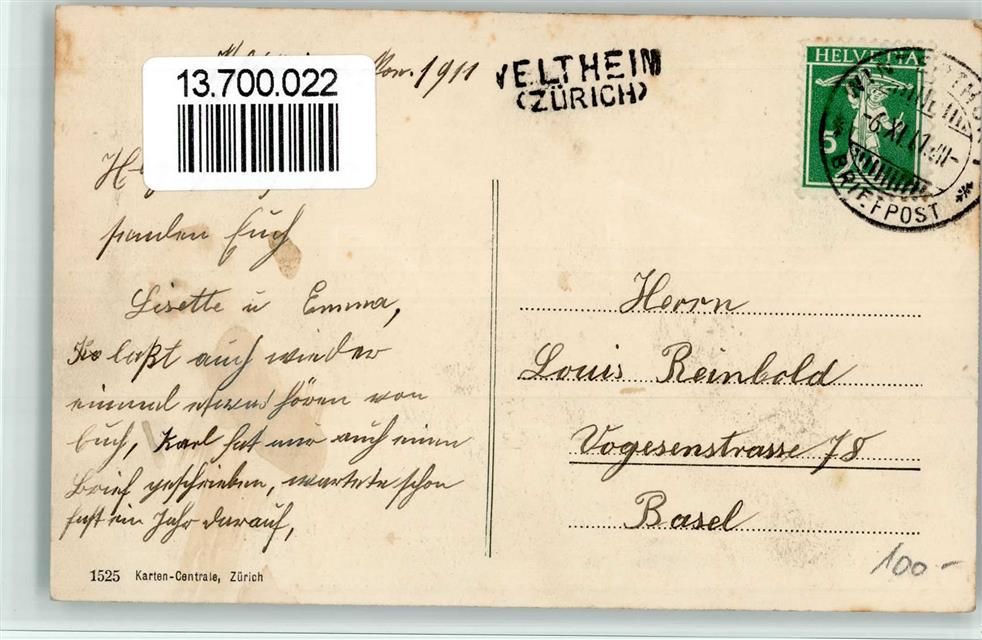 13.700.022
Nov. 1911
VELTHEIM
(ZÜRICH)
HELVETIA
5
-6.XI.11
BRIEFPOST
senden Euch
Lisette u Emma,
laßt auch wieder
einmal etwas hören von
Euch, Karl hat mir auch einen
Brief geschrieben, wartete schon
fast ein Jahr darauf,
Herrn
Louis Reinbold
Vogesenstrasse 78
Basel
1525 Karten-Centrale, Zürich
100-